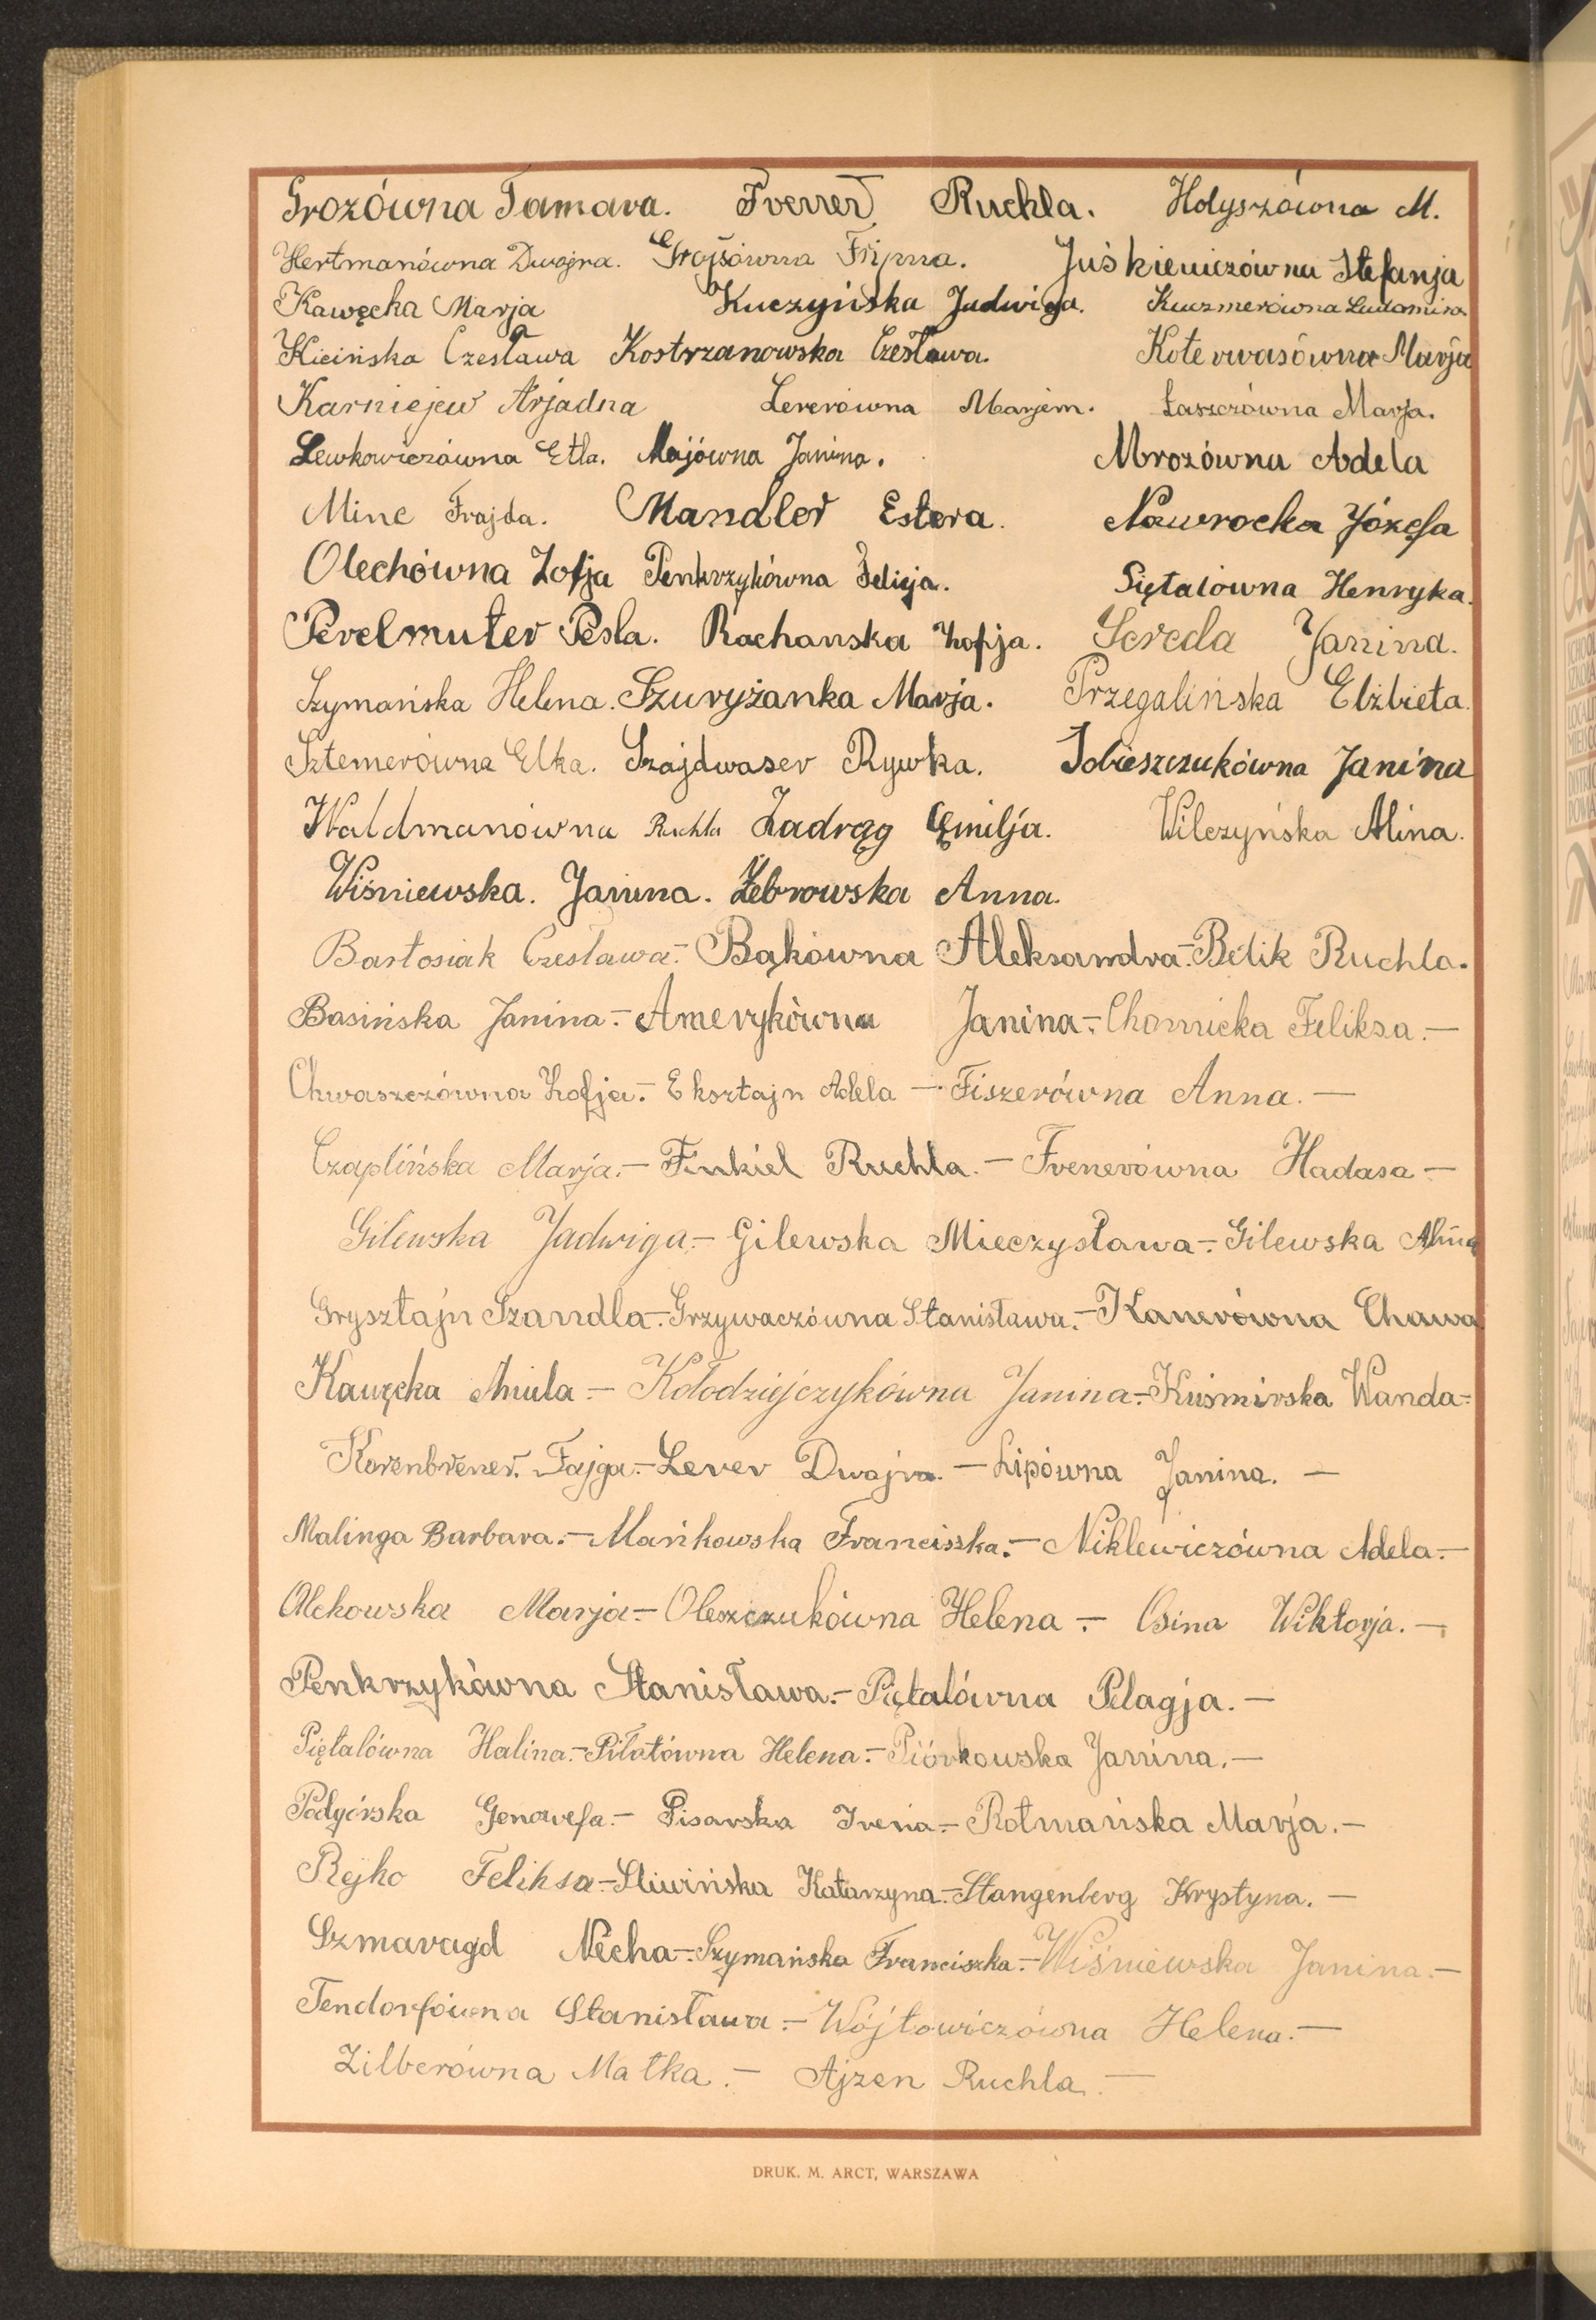 Grozówna Tamara. Frerer Ruchla. Hołyszówna M.
Hertmanówna Dwojra. Grojsówna Fryma. Juśkiewiczówna Stefanja
Kawęcka Marja Kuczyńska Jadwiga. Kuzmerówna Ludomira
Kicińska Czesława Kostrzanowska Czesława. Koterwasówna Marja
Karniejew Arjadna Lererówna Marjem. Łaszczówna Marja.
Lewkowiczówna Etla. Majówna Janina. Mrozówna Adela
Minc Frajda. Mandler Estera. Nawrocka Józefa
Olechówna Zofja Penkrzykówna Felicja. Piętalówna Henryka.
Perelmuter Pesla. Rachanska Zofja. Sereda Janina.
Szymańska Helena. Szuryżanka Marja. Przegalińska Elżbieta.
Sztemerówna Elka. Szajdwaser Rywka. Sobieszczukówna Janina
Waldmanówna Ruchla Zadrąg Emilja. Wilczyńska Alina.
Wiśniewska. Janina. Żebrowska Anna.
Bartosiak Czesława.- Bąkówna Aleksandra.- Belik Ruchla.
Basińska Janina.- Amerykówna Janina.- Chomicka Feliksa.-
Chwaszczówna Zofja.- Eksztajn Adela - Fiszerówna Anna.-
Czaplińska Marja.- Finkiel Ruchla.- Frenerówna Hadasa-
Gilewska Jadwiga.- Gilewska Mieczysława.- Gilewska Alina
Grysztajn Szandla.- Grzywaczówna Stanisława.- Kanerówna Chawa
Kawęcka Aniela- Kołodziejczykówna Janina.- Kuśmirska Wanda-
Korenbrener. Fajga.- Lerer Dwojra.- Lipówna Janina.-
Malinga Barbara.- Mańkowska Franciszka.- Niklewiczówna Adela.-
Olekowska Marja.- Oleszczukówna Helena.- Osina Wiktorja.-
Penkrzykówna Stanisława.- Piętalówna Pelagja.-
Piętalówna Halina.- Piłatówna Helena.- Piórkowska Janina.-
Podgórska Genowefa.- Pisarska Irena.- Rotmańska Marja.-
Rejko Feliksa.- Śliwińska Katarzyna.- Stangenberg Krystyna.-
Szmaragd Necha.- Szymańska Franciszka.- Wiśniewska Janina.-
Tendorfówna Stanisława.- Wójtowiczówna Helena.-
Zilberówna Matka.- Ajzen Ruchla.-
DRUK. M. ARCT, WARSZAWA